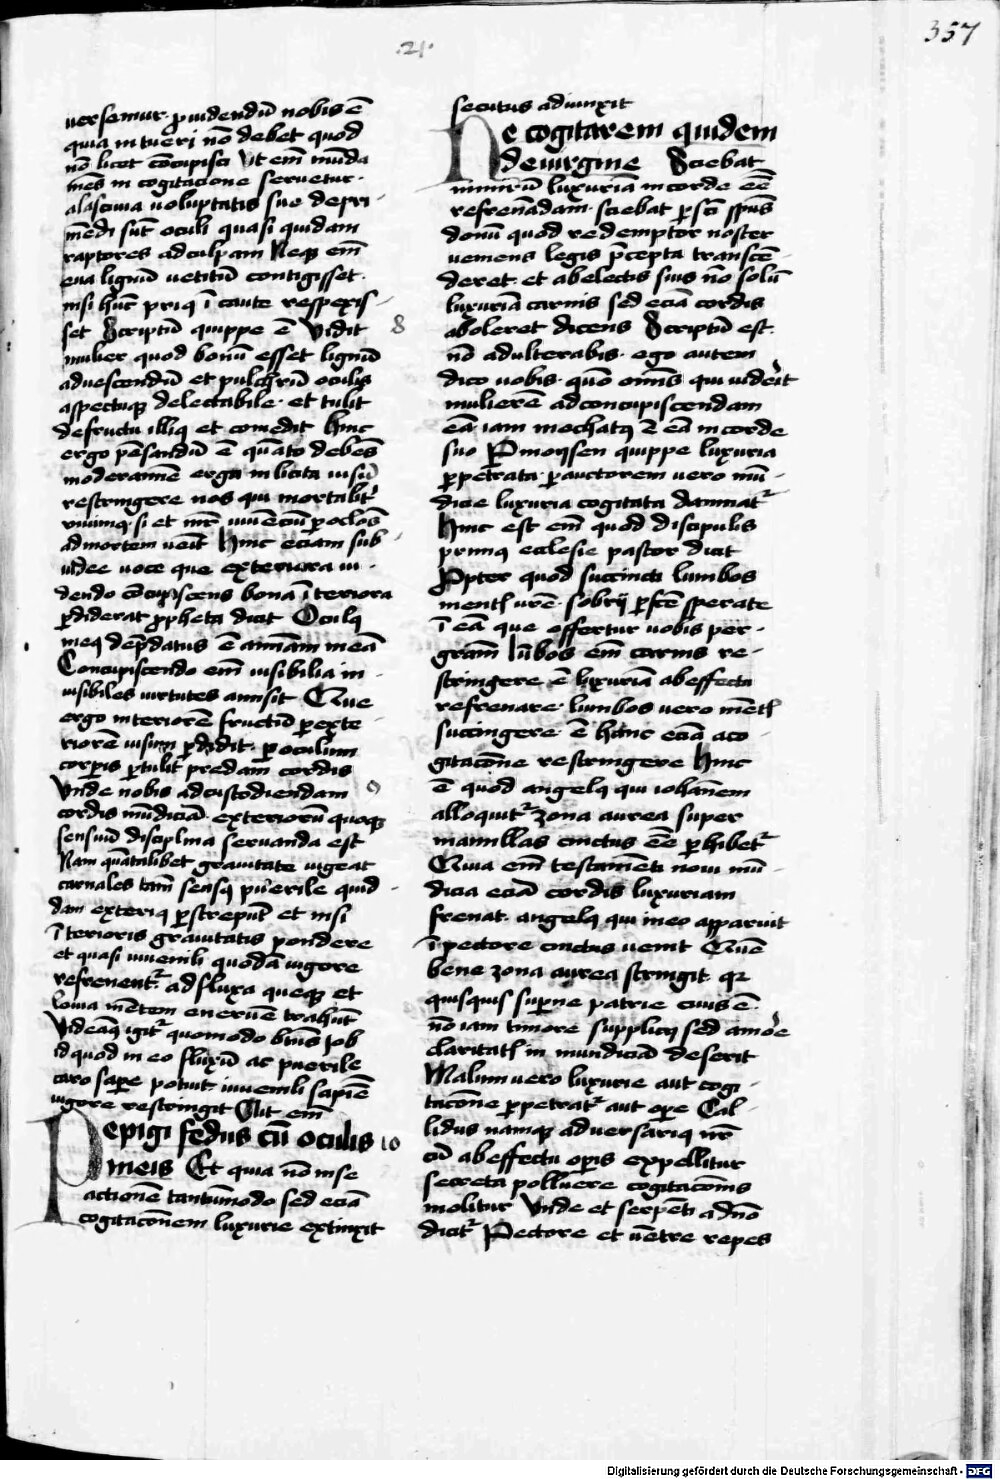 .21.
357
uersemur. prouidendū nobis ē
quia intueri nō debet quod
nō licet cōcupisci Vt em̄ mūda
mēs in cogitacione seruetur.
a lasciuia uoluptatis sue depri-
mēdi sūt oculi quasi quidam
raptores ad culpam Neqꝫ em̄
eua lignū uetitū contigisset.
nisi hūc priꝰ ī caute respexis-
set Scriptū quippe ē Vidit
mulier quod bonū esset lignū
ad uescendū et pulchrū oculis
aspectuqꝫ delectabile. et tulit
de fructu illiꝰ et comedit Hinc
ergo pēsandū ē quāto debeꝰ
moderamīe erga inlicita uisū
restringere nos qui mortalit̄
viuimꝰ. si et mr̄ uiuēciū ꝑ oc̄los
ad mortem uēit Hinc eciam sub
iudee uoce que exteriora ui-
dendo cōcupiscens bona īteriora
ꝑdiderat ꝓpheta dicit Oculꝰ
meꝰ dep̄datus ē animam meā
Concupiscendo em̄ uisibilia in-
uisibiles uirtutes amisit Que
ergo interiorē fructū ꝑ exte-
riorē uisum ꝑdidit. ꝑ oculum
corꝑis ꝑtulit predam cordis
Vnde nobis ad custodiendam
cordis mūdiciā. exteriorū quoqꝫ
sensuū disciplina seruanda est
Nam quātalibet grauitate uigeat
carnales tam̄ sensꝰ puerile quid-
dam exteriꝰ ꝑstrepūt et nisi
īterioris grauitatis pondere
et quasi iuuenili quodā uigore
refrenent̄. ad fluxa queqꝫ et
leuia mētem eneruē trahūt
Videamꝰ igit̄ quomodo btūs Job
id quod in eo fluxū ac puerile
caro saꝑe potuit. iuuenili sapiēcie
uigore restringit Ait em̄
Pepigi fedus cū oculis
meis Et quia nō in se
actionē tantūmodo sed eciā
cogitacōnem luxurie extinxit
8
9
10
secutus adiunxit
Ne cogitarem quidem
de uirgine Sciebat
nimirū luxuriā in corde eē
refrenādam. sciebat ꝑ sc̄i spūs
donū quod redemptor noster
ueniens legis p̄cepta transcē-
deret. et ab electis suis nō solū
luxuriā carnis sed eciā cordis
aboleret dicens Scriptū est.
nō adulterabis. ego autem
dico uobis. quō omīs qui uiderit
mulierē ad concupiscendam
eā iam mechatꝰ ē eā in corde
suo P moysen quippe luxuria
ꝑpetrata. ꝑ auctorem uero mū-
dicie luxuria cogitata damnat̄
Hinc est em̄ quod discipulis
primꝰ ecclesie pastor dicit
Ppter quod succincti lumbos
mentꝭ urē. sobrij ꝑfc̄e sperate
ī eā que offertur uobis ꝑer-
gram̄ lūbos em̄ carnis re-
stringere ē luxuriā ab effectu
refrenare. lumbos uero mentꝭ
succingere. ē hanc eciā a co-
gitacōne restringere Hinc
ē quod angelꝰ qui iohānem
alloquit̄ zona aurea super
mamillas cinctus eē ꝑhibet̄
Quia em̄ testamēti noui mū-
dicia eciā cordis luxuriam
frenat. angelꝰ qui in eo apparuit
ī pectore cinctus uenit Quē
bene zona aurea stringit. qꝛ
quisquis suꝑne patrie ciuis ē.
nō iam timore supplicij sed amore
claritatꝭ in mundiciā deserit
Malum uero luxurie aut cogi-
tacōne ꝑpetrat̄ aut oꝑe Cal-
lidus namqꝫ aduersariꝰ nr̄
cū ab effectu oꝑis expellitur
secreta polluere cogitacōnis
molitur Vnde et serpēti a dn̄o
dicit̄ Pectore et uētre repes
Digitalisierung gefördert durch die Deutsche Forschungsgemeinschaft - DFG